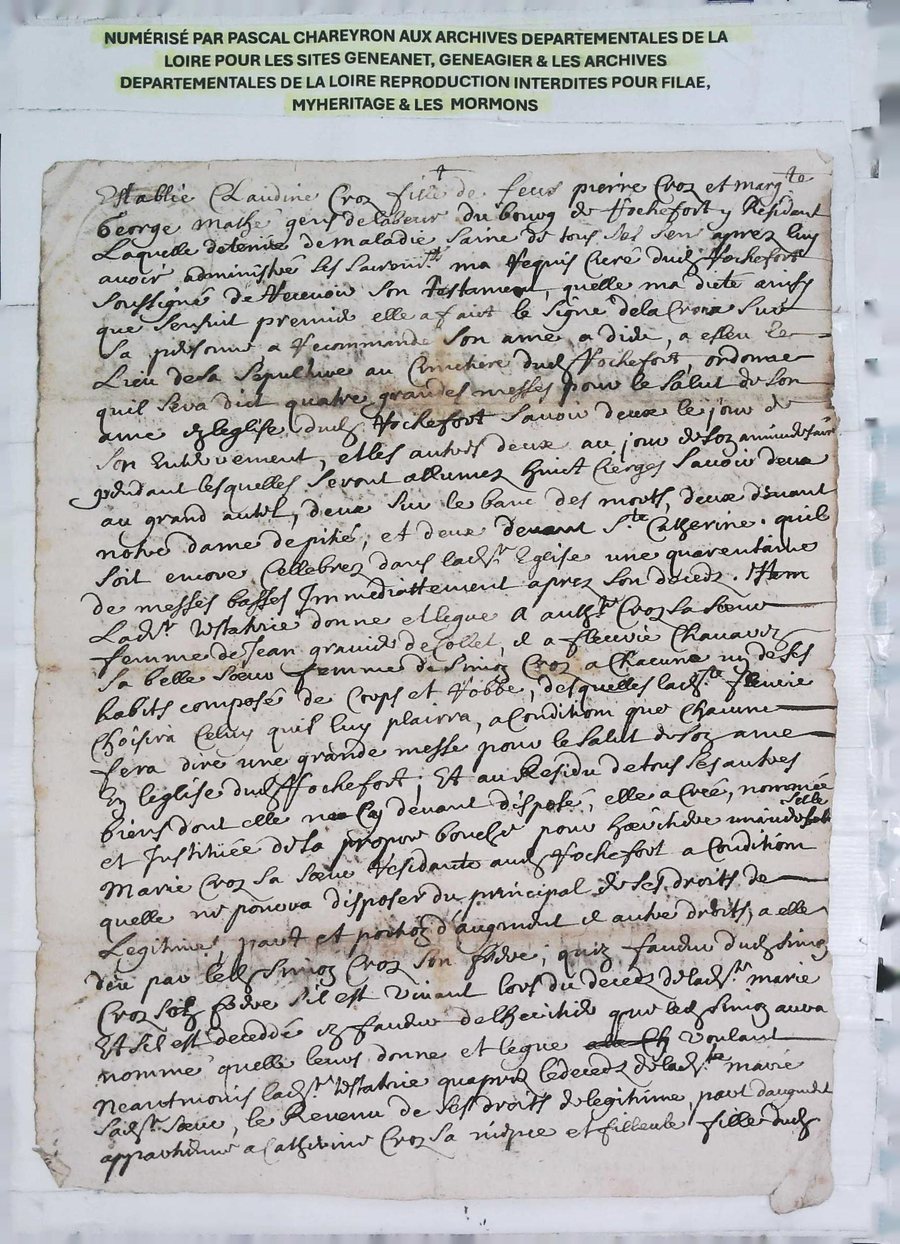 NUMÉRISÉ PAR PASCAL CHAREYRON AUX ARCHIVES DEPARTEMENTALES DE LA
LOIRE POUR LES SITES GENEANET, GENEAGIER & LES ARCHIVES
DEPARTEMENTALES DE LA LOIRE REPRODUCTION INTERDITES POUR FILAE,
MYHERITAGE & LES MORMONS
Establie Claudine Croz fille de feus pierre Croz et margte
George mathé gens de labeur du bourg de Rochefort y Residant
Laquelle detenue de maladie saine de tous ses sens apres luy
avoir administré les ma Requis Curé dud Rochefort
soussigné de Recevoir son testament, quelle ma dicté ainsy
que sensuit premier elle a faict le signe de la Croix sur
sa personne a Recommandé son ame a dieu, a esleu le
Lieu de sa sepulture au Cimetiere dud Rochefort, ordonne
quil sera dict quatre grandes messes pour le salut de son
ame leglise dud Rochefort savoir deux le jour de
son enterrement, et les autres deux au jour de
pendant lesquelles seront allumez huict Cierges savoir deux
au grand autel, deux sur le banc des morts, deux devant
notre dame de pitié, et deux devant Ste Catherine. quil
soit encore Cellebrez dans ladte Eglise une quarentaine
de messes basses Immediattement apres son decez. Item
Ladte testatrie donne et legue a Croz sa sœur
femme de Jean de Collet, il a fleurie
sa belle sœur femme de simoz Croz a Chacune un de ses
habits composé de Corps et Robbe, desquelles ladte fleurie
Choisira Celuy quil luy plairra, a Condition que Chacune
fera dire une grande messe pour le salut de soz ame
Ez leglise dud Rochefort; Et au Residu de tous ses autres
biens dont elle na Cy devant disposé, elle a Créé, nommée
et Instituée de sa propre bouche pour heritiere
Marie Croz sa sœur Residante aud Rochefort a Condition
quelle ne pourra disposer du principal de ses droits de
Legitime, part et portioz d'augment il autre droits, a elle
deu par led simoz Croz son frere, quez faveur dud simoz
Croz soz frere sil est vivant lors du decez de ladte marie
Et sil est deceddé ez faveur de lheritier que led simoz aura
nommé quelle leurs donne et legue voulant
neantmoins ladte testatrie quapres le decez de ladte marie
sadte sœur, le Revenu de ses droits de legitime, part daugment
appartienne a Catherine Croz sa niepce et filleule fille dud